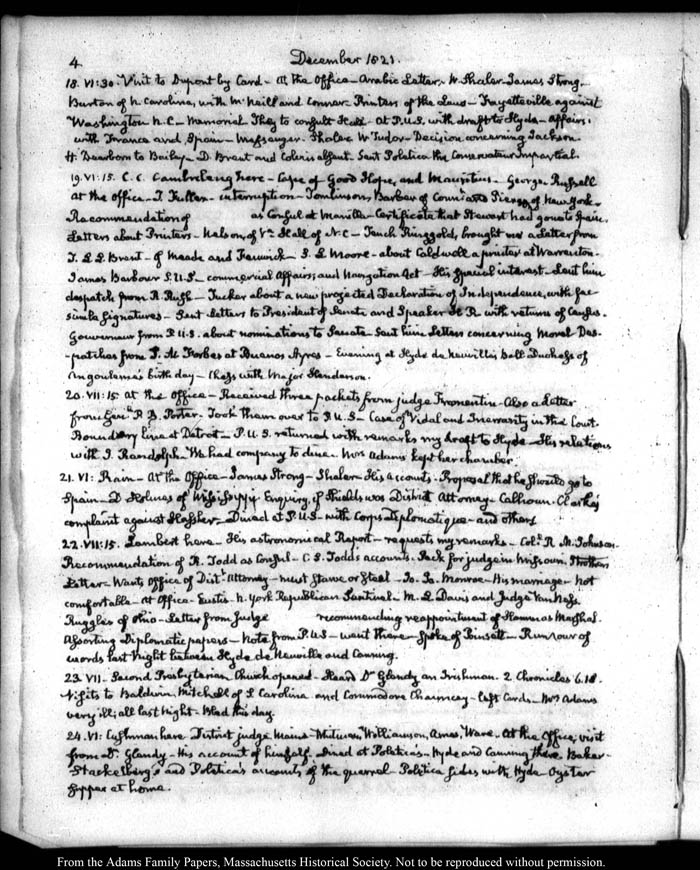 4 December 1821.
18. VI:30. Visit to Dupont by Card – At the Office – Arabic Letter. W. Shaler. James Strong.
Burton of N. Carolina, with McNeill and Printers of the Laws – Fayetteville against
Washington N.C – Memorial They to consult Hall – At P.U.S. with draft to Hyde – Affairs
with France and Spain – Messenger. Shaler W Tudor – Decision concerning Jackson
H. Dearborn to Bailey – D. Brent and Colvin absent. Sent Politica the Conservateur Impartial.
19. VI:15. C. C. Cambreleng here – Cape of Good Hope, and Mauritius – George Russell
at the office – T. Fuller – interruption – Tomlinson, Barber of Connt. and Pierson of New York –
Recommendation of as Consul at Manilla – Certificate that Stewart had gone to Spain.
Letters about Printers – Nelson, of Va. Hall of N. C – Tench Ringgold, brought me a Letter from
T. L. L. Brent – of Meade and Fenwick – S. L Moore – about Caldwell a printer at Warrenton.
James Barbour S.U.S – commercial Affairs, and Navigation Act – His special interest – Sent him
despatch from R. Rush – Tucker about a new projected Declaration of Independence, with fac
simile signatures – Sent Letters to President of Senate and Speaker H. R. with return of Census.
Gouverneur from P.U.S. about nominations to Senate – Sent him Letters concerning Morel Des-
-patches from J. M. Forbes at Buenos Ayres – Evening at Hyde de Neuville's ball Duchess of
Angouleme's birth day – Chess with Major Henderson.
20. VII:15 At the Office – Received three packets from judge Fromentin – Also a Letter
from Genl. P. B. Porter – Took them over to P.U.S – Case of Vidal and Inerarity in the Court.
Boundary line at Detroit – P.U.S. returned with remarks my draft to Hyde – His relations
with J. Randolph. We had company to dine – Mrs Adams kept her chamber.
21. VI: Rain – At the Office – James Strong – Shaler – His accounts. Proposal that he should go to
Spain – D Holmes of Mississippi Enquiry, if Shields was District Attorney – Calhoun. Clark's
complaint against Hassler – Dined at P.U.S – with Corps Diplomatique – and others
22. VII:15. Lambert here – His astronomical Report – requests my remarks – Coll. R. M. Johnson.
Recommendation of R. Todd as Consul – C S. Todd's accounts. Peck for judge in Missouri. Strother's
Letter – Wants Office of Distt. Attorney – must Starve or Steal – Jo. Jo. Monroe – His marriage – Not
comfortable – At Office – Eustis. N. York Republican Sentinel – M. L Davis and Judge Van Ness
Ruggles of Ohio – Letter from Judge recommending reappointment of Hamm as Marshal.
Assorting Diplomatic papers – Note from P.U.S – went there – Spoke of Poinsett – Rumour of
words last Night between Hyde de Neuville and Canning.
23. VII – Second Presbyterian Church opened – Heard Dr Glendy an Irishman. 2. Chronicles 6.18.
Visits to Baldwin. Mitchell of S Carolina and Commodore Chauncey – left Cards – Mrs Adams
very ill; all last Night – Bled this day.
24. VI: Cushman here District judge Maine – Williamson, Ames, Ware – At the Office, visit
from Dr. Glendy – His account of himself – Dined at Politica's – Hyde and Canning there. Baker –
Stackelberg's and Politica's accounts of the quarrel Politica sides with Hyde – Oyster
supper at home.
From the Adams Family Papers, Massachusetts Historical Society. Not to be reproduced without permission.